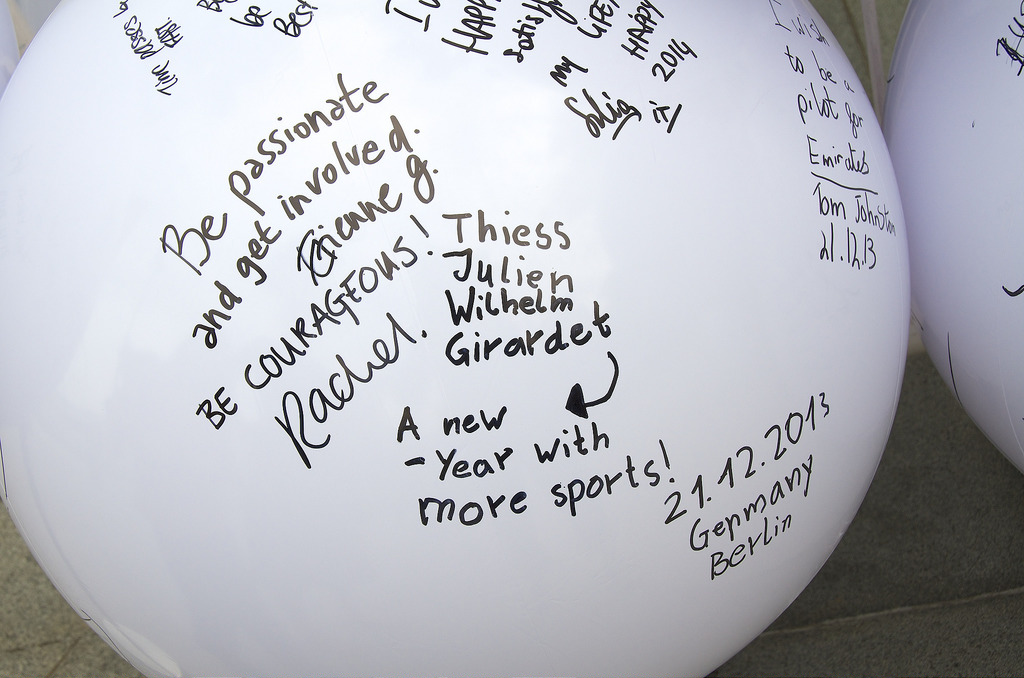 Time passes by
FAST
be
Best
HAPPY
satisfy
my LIFE!
HAPPY
2014
it!
I wish
to be a
pilot for
Emirates
Tom Johnston
21.12.13
Be passionate
and get involved.
Etienne g.
BE COURAGEOUS!
Rachel.
Thiess
Julien
Wilhelm
Girardet
A new
-Year with
more sports!
21.12.2013
Germany
Berlin